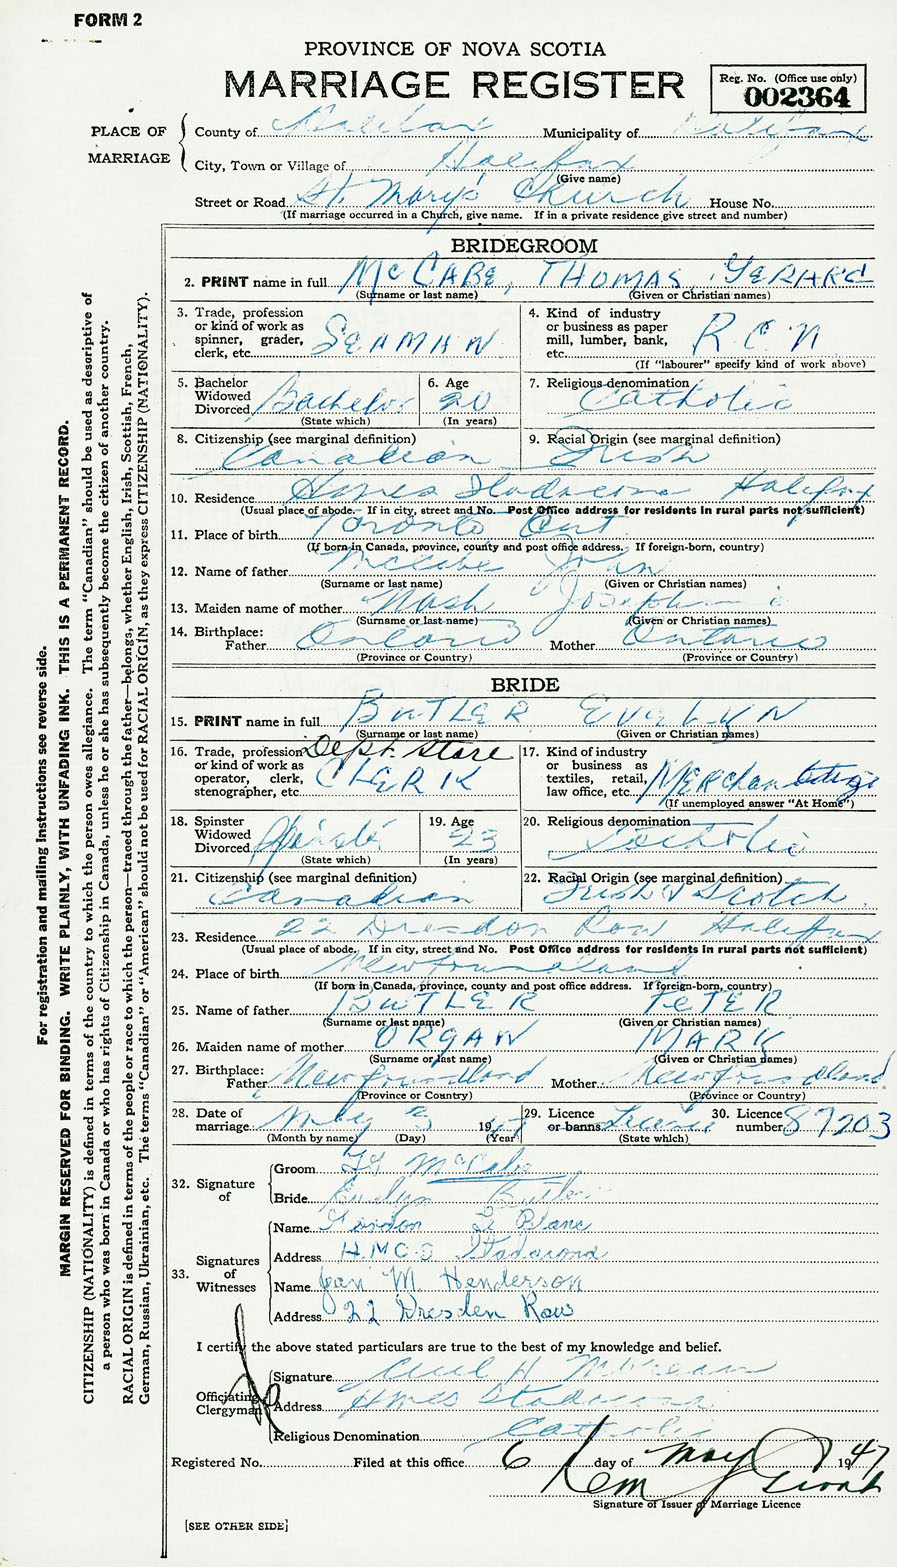 FORM 2
PROVINCE OF NOVA SCOTIA
MARRIAGE REGISTER
Reg. No. (Office use only)
002364
PLACE OF MARRIAGE
County of Halifax Municipality of Halifax
City, Town or Village of Halifax
(Give name)
Street or Road St. Mary's Church House No.
(If marriage occurred in a Church, give name. If in a private residence give street and number)
BRIDEGROOM
2. PRINT name in full McCABE, THOMAS, GERARD
(Surname or last name) (Given or Christian names)
3. Trade, profession or kind of work as spinner, grader, clerk, etc. SEAMAN
4. Kind of industry or business as paper mill, lumber, bank, etc. R.C.N
(If "labourer" specify kind of work above)
5. Bachelor Widowed Divorced Bachelor
(State which)
6. Age 20
(In years)
7. Religious denomination Catholic
8. Citizenship (see marginal definition) Canadian
9. Racial Origin (see marginal definition) Irish
10. Residence Hmcs Stadacona Halifax
(Usual place of abode. If in city, street and No. Post Office address for residents in rural parts not sufficient)
11. Place of birth Toronto Ont
(If born in Canada, province, county and post office address. If foreign-born, country)
12. Name of father McCabe John
(Surname or last name) (Given or Christian names)
13. Maiden name of mother Nash Josephine
(Surname or last name) (Given or Christian names)
14. Birthplace: Father Ontario Mother Ontario
(Province or Country) (Province or Country)
BRIDE
15. PRINT name in full BUTLER EVELYN
(Surname or last name) (Given or Christian names)
16. Trade, profession or kind of work as operator, clerk, stenographer, etc. Dept. Store CLERK
17. Kind of industry or business as textiles, retail, law office, etc.
(If unemployed answer "At Home")
18. Spinster Widowed Divorced
(State which)
19. Age 23
(In years)
20. Religious denomination Catholic
21. Citizenship (see marginal definition) Canadian
22. Racial Origin (see marginal definition) Irish & Scotch
23. Residence 22 Dresdon Row Halifax
(Usual place of abode. If in city, street and No. Post Office address for residents in rural parts not sufficient)
24. Place of birth Newfoundland
(If born in Canada, province, county and post office address. If foreign-born, country)
25. Name of father BUTLER PETER
(Surname or last name) (Given or Christian names)
26. Maiden name of mother ORGAN MARY
(Surname or last name) (Given or Christian names)
27. Birthplace: Father Newfoundland Mother Newfoundland
(Province or Country) (Province or Country)
28. Date of marriage May 3 1947
(Month by name) (Day) (Year)
29. Licence or banns Licence
(State which)
30. Licence number 87203
32. Signature of
Groom McCabe
Bride Evelyn Butler
33. Signatures of Witnesses
Name Gordon Le Blanc
Address H.M.C.S Stadacona
Name Jean M Henderson
Address 22 Dresden Row
I certify the above stated particulars are true to the best of my knowledge and belief.
Officiating Clergyman
Signature
Address Hmcs Stadacona
Religious Denomination Catholic
Registered No. Filed at this office 6 day of May 1947
Signature of Issuer of Marriage Licence
[SEE OTHER SIDE]
For registration and mailing instructions see reverse side.
MARGIN RESERVED FOR BINDING. WRITE PLAINLY, WITH UNFADING INK. THIS IS A PERMANENT RECORD.
CITIZENSHIP (NATIONALITY) is defined in terms of the country to which the person owes allegiance. The term "Canadian" should be used as descriptive of
a person who was born in Canada or who has rights of Citizenship in Canada, unless he or she has subsequently become the citizen of another country.
RACIAL ORIGIN is defined in terms of the people or race to which the person—traced through the father—belongs, whether English, Irish, Scottish, French,
German, Russian, Ukrainian, etc. The terms "Canadian" or "American" should not be used for RACIAL ORIGIN, as they express CITIZENSHIP (NATIONALITY).